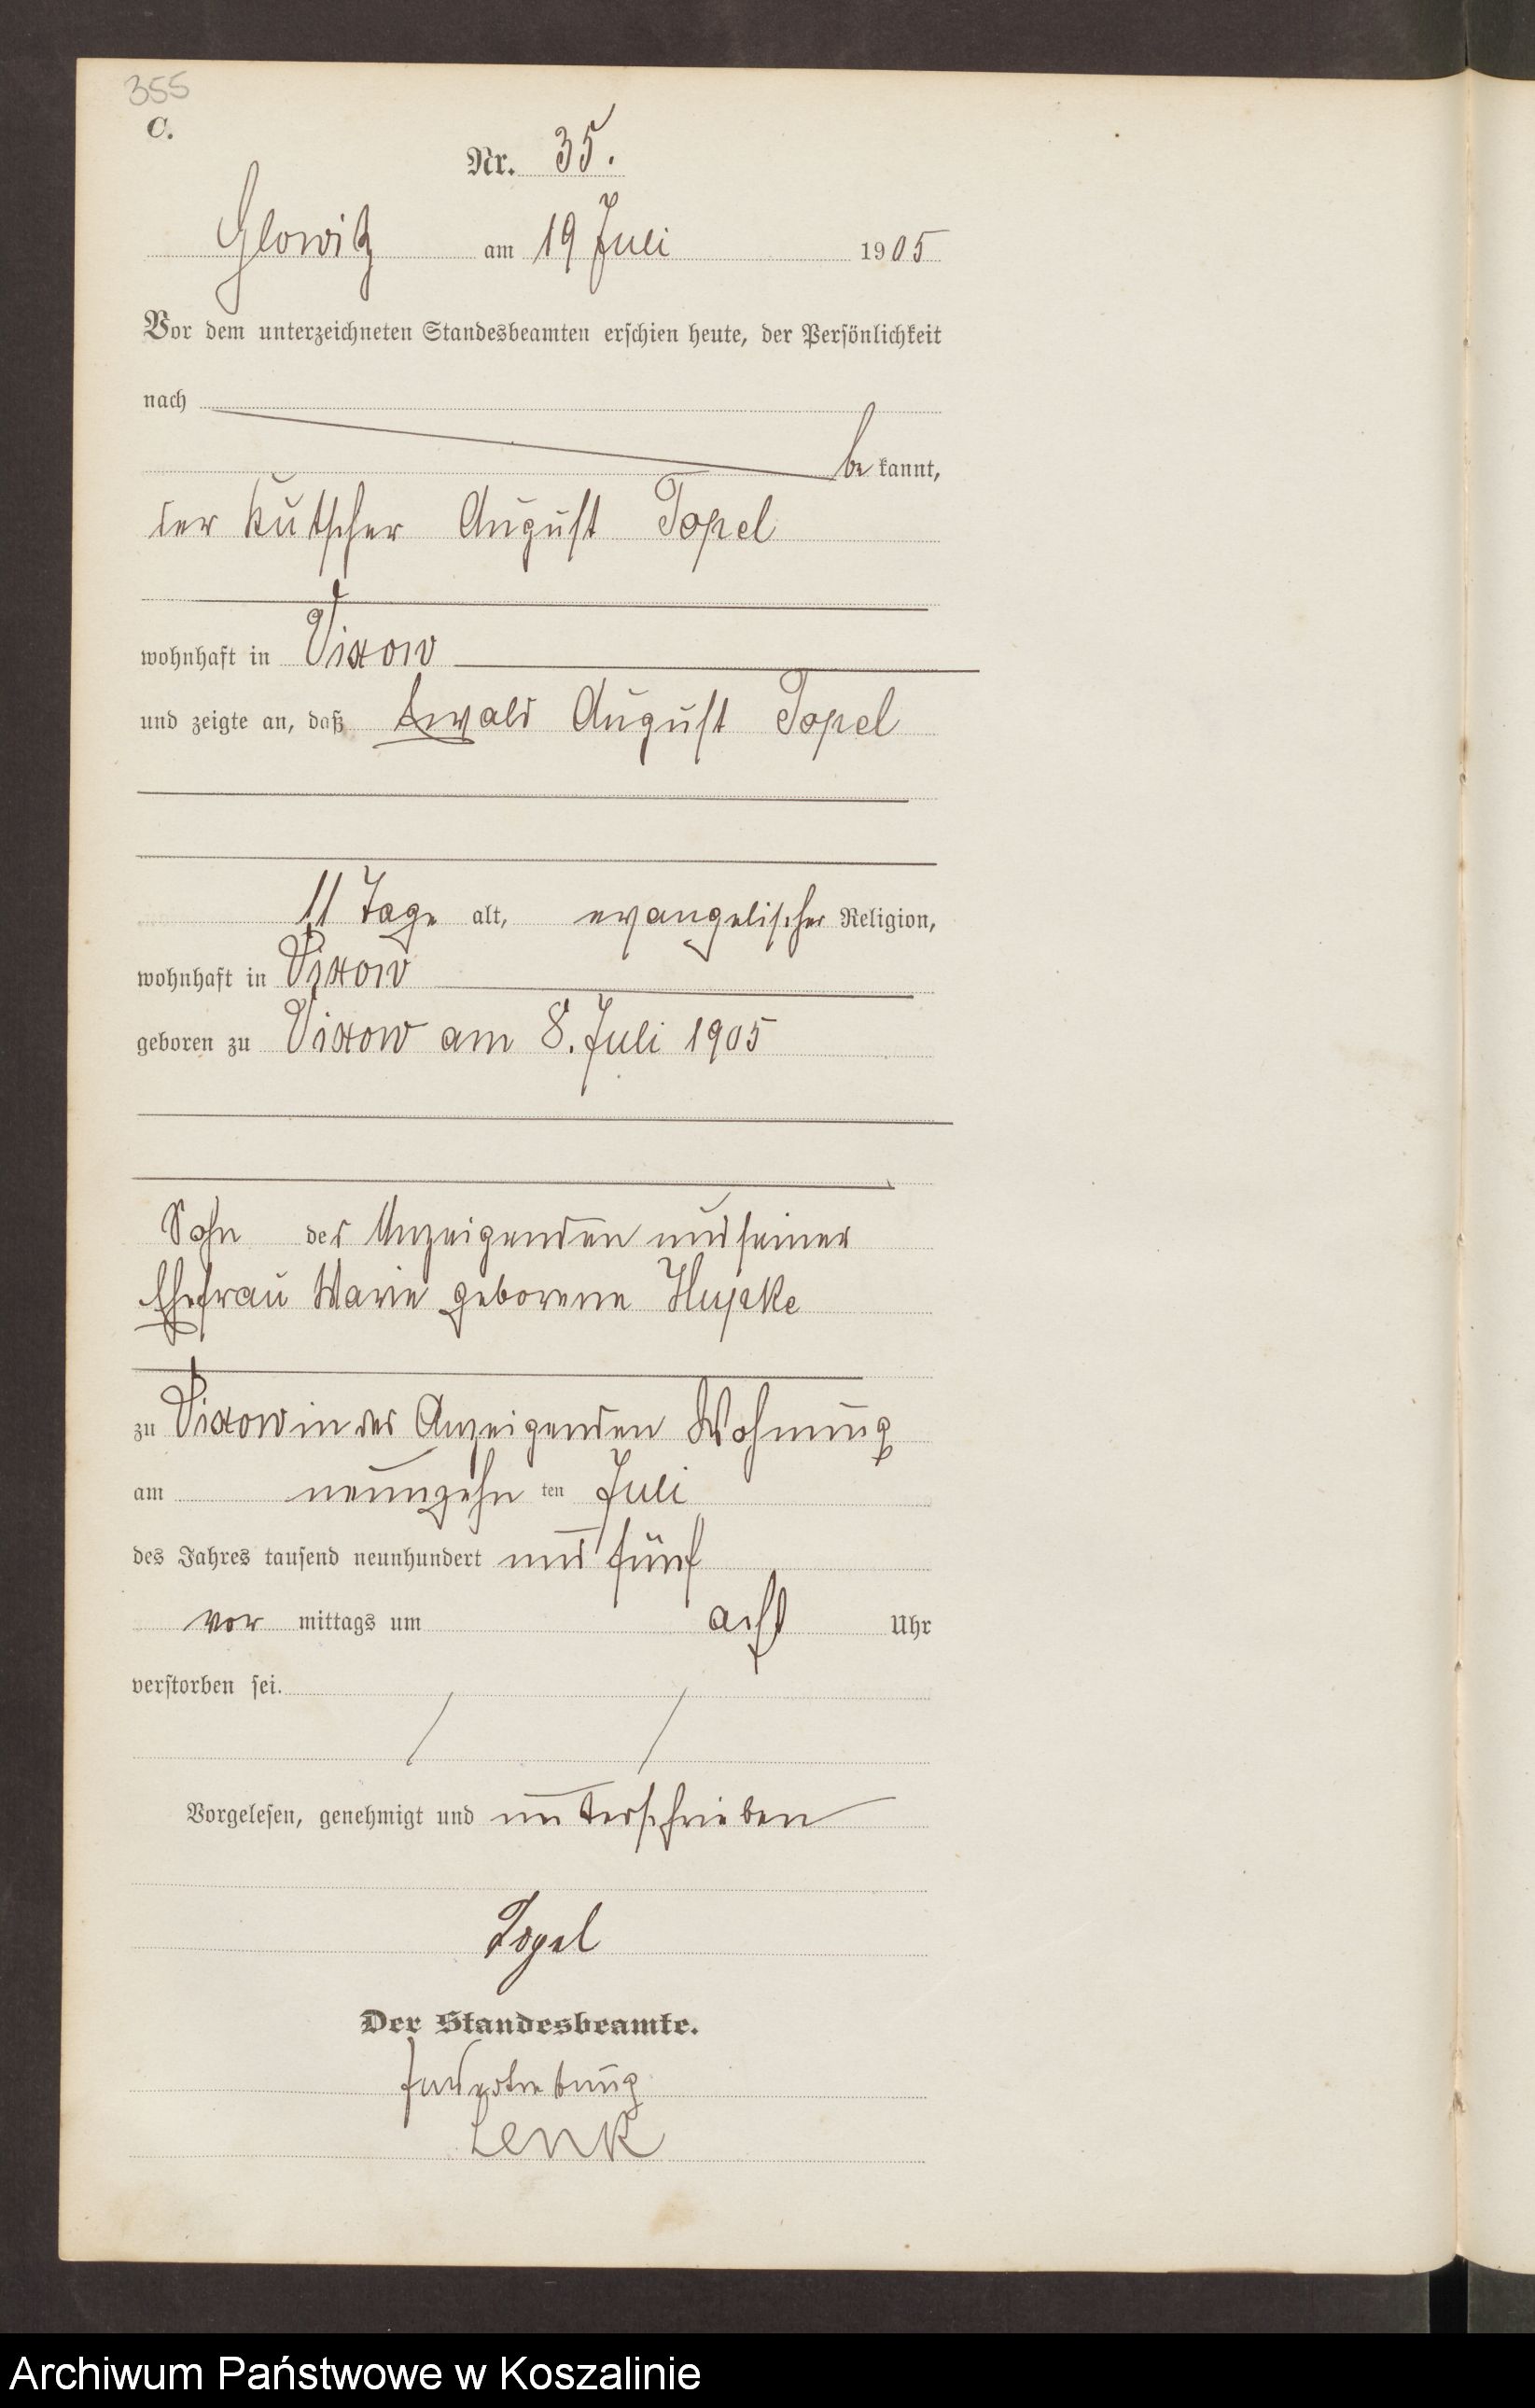 355
C.
Nr. 35.
Glowitz am 19 Juli 1905
Vor dem unterzeichneten Standesbeamten erschien heute, der Persönlichkeit
nach
be kannt,
der Kutscher August Topel
wohnhaft in Vixow
und zeigte an, daß Ewald August Topel
11 Tage alt, evangelischer Religion,
wohnhaft in Vixow
geboren zu Vixow am 8. Juli 1905
Sohn des Anzeigenden und seiner
Ehefrau Marie geborene Hupke
zu Vixow in des Anzeigenden Wohnung
am neunzehn ten Juli
des Jahres tausend neunhundert und fünf
vor mittags um acht Uhr
verstorben sei.
Vorgelesen, genehmigt und unterschrieben
Topel
Der Standesbeamte.
In Vertretung
Lenk
Archiwum Państwowe w Koszalinie